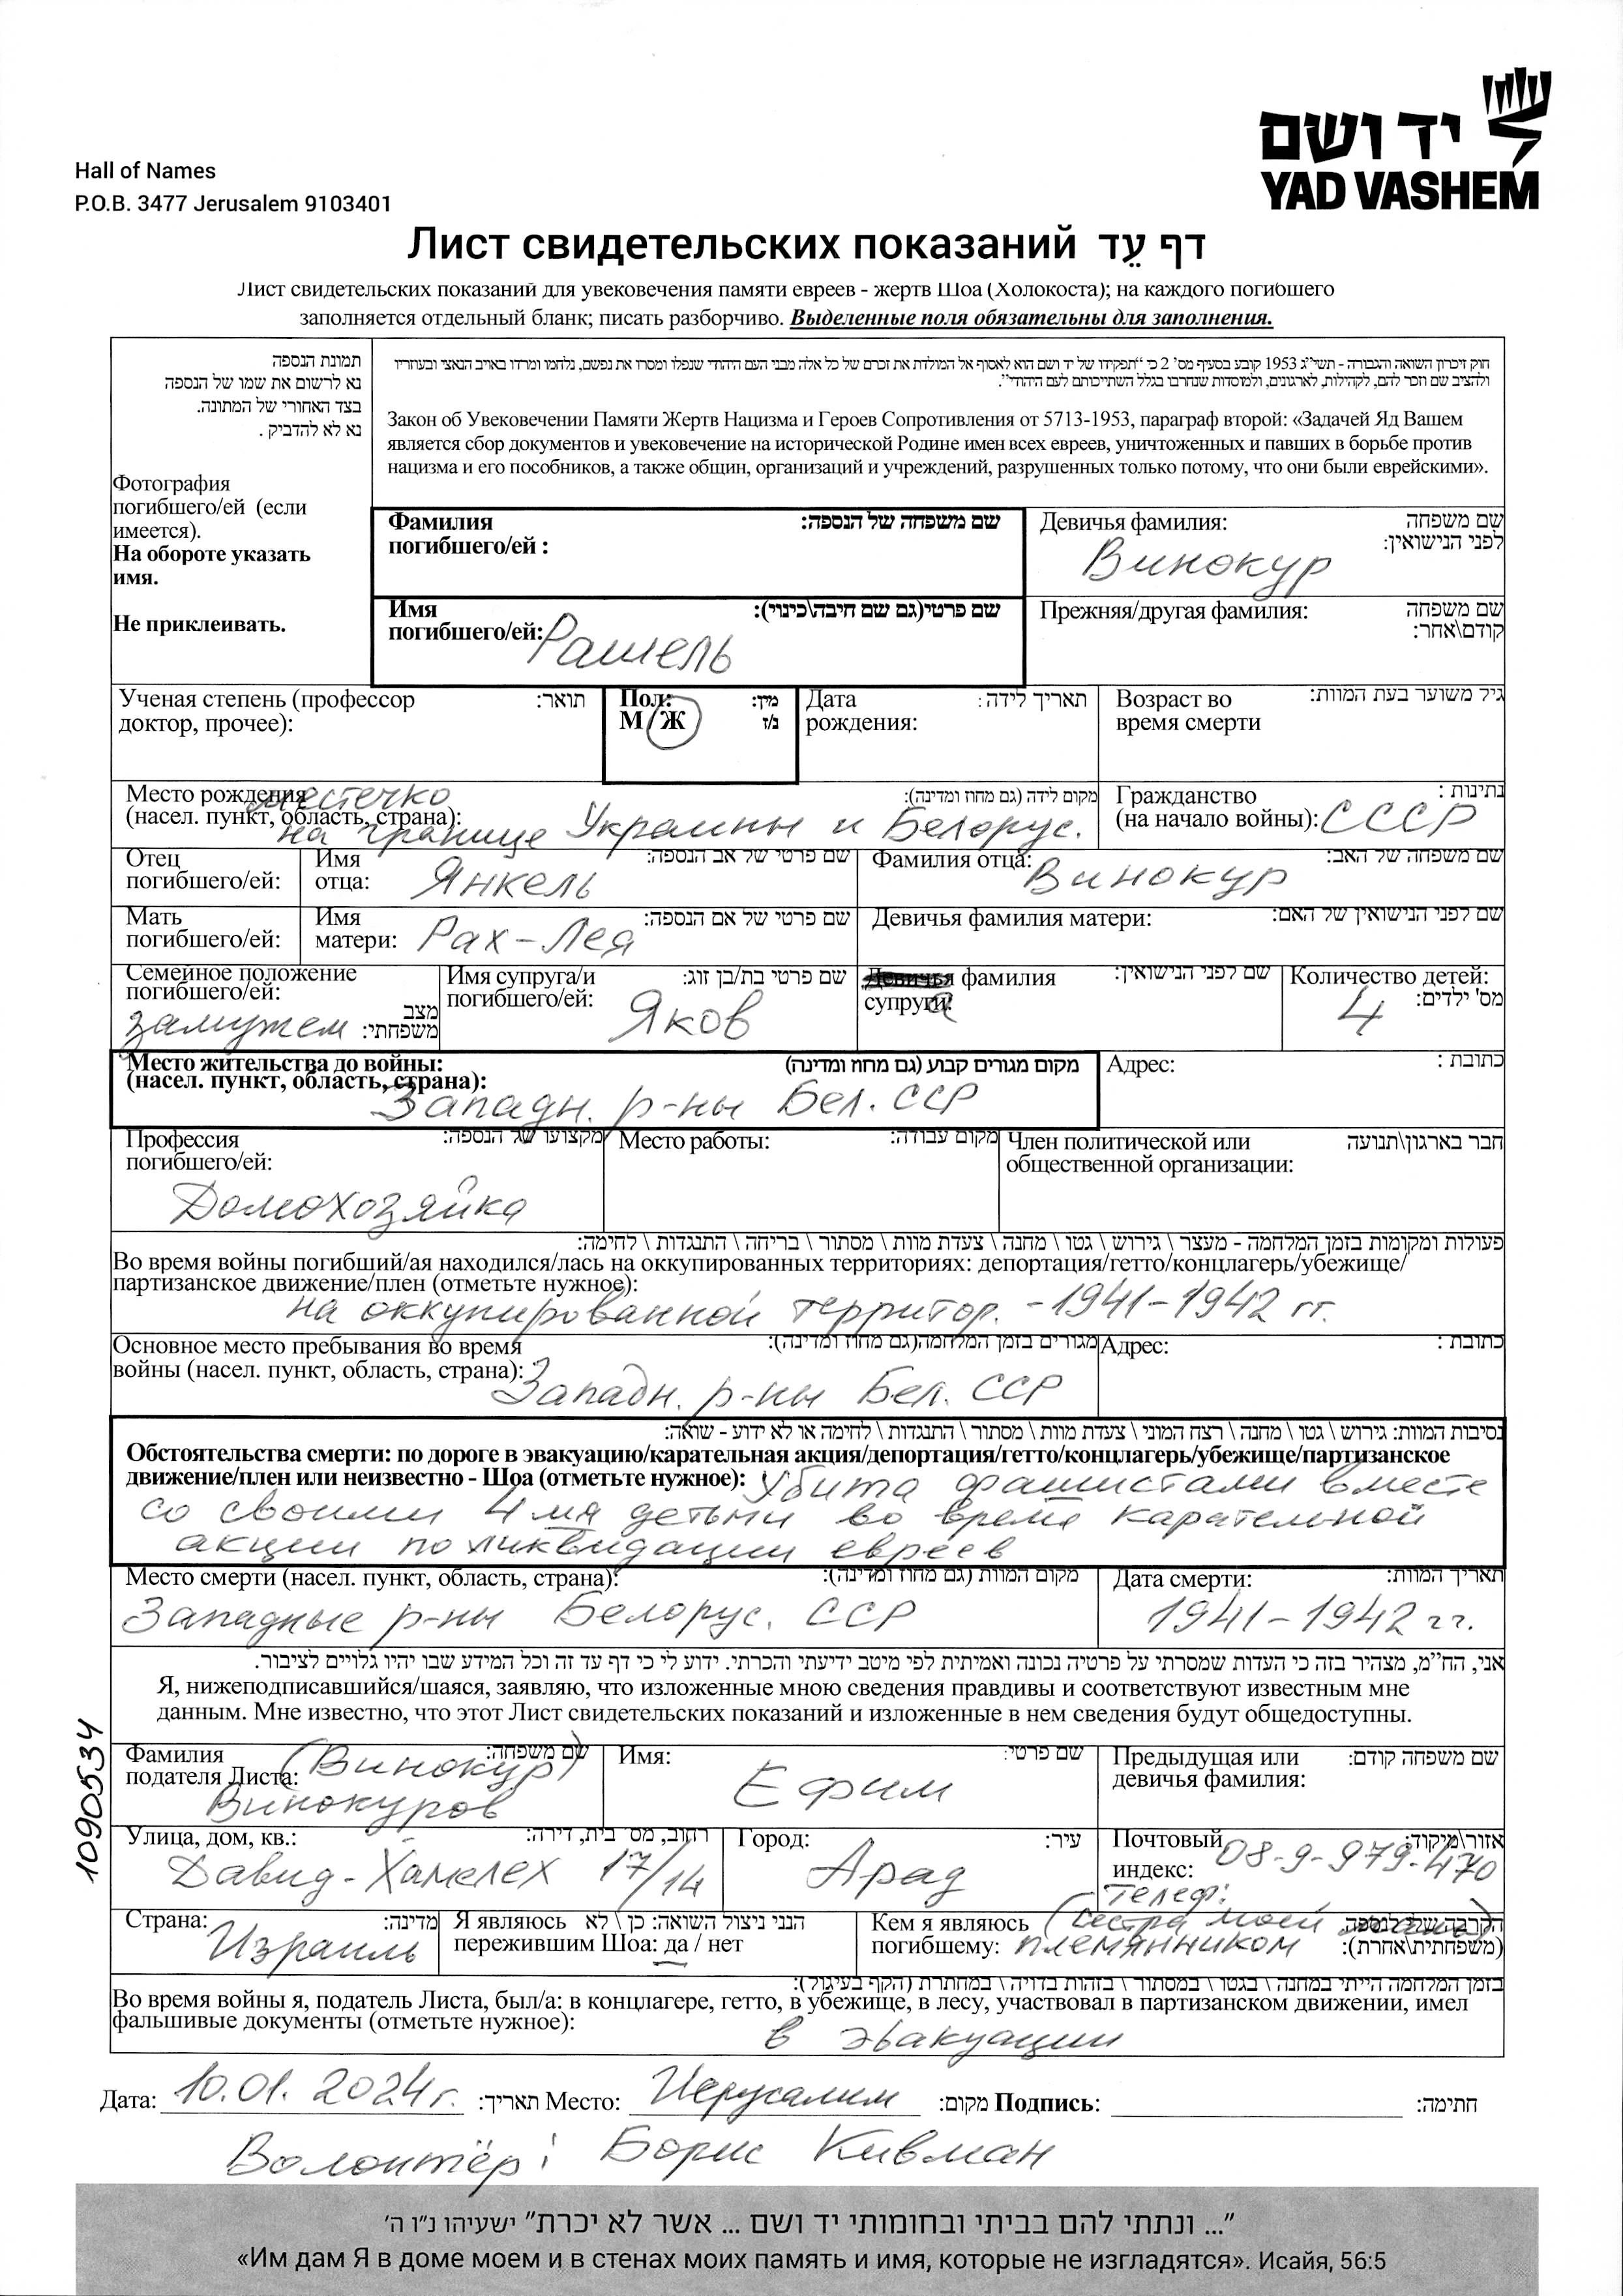 יד ושם
YAD VASHEM
Hall of Names
P.O.B. 3477 Jerusalem 9103401
Лист свидетельских показаний דף עֵד
Лист свидетельских показаний для увековечения памяти евреев - жертв Шоа (Холокоста); на каждого погибшего
заполняется отдельный бланк; писать разборчиво. Выделенные поля обязательны для заполнения.
תמונת הנספה
נא לרשום את שמו של הנספה
בצד האחורי של המתונה.
נא לא להדביק .
Фотография
погибшего/ей (если
имеется).
На обороте указать
имя.
Не приклеивать.
חוק זיכרון השואה והגבורה - תשי"ג 1953 קובע בסעיף מס' 2 כי "תפקידו של יד ושם הוא לאסוף אל המולדת את זכרם של כל אלה מבני העם היהודי שנפלו ומסרו את נפשם, נלחמו ומרדו באויב הנאצי ובעוזריו
ולהציב שם וזכר להם, לקהילות, לארגונים, ולמוסדות שנחרבו בגלל השתייכותם לעם היהודי".
Закон об Увековечении Памяти Жертв Нацизма и Героев Сопротивления от 5713-1953, параграф второй: «Задачей Яд Вашем
является сбор документов и увековечение на исторической Родине имен всех евреев, уничтоженных и павших в борьбе против
нацизма и его пособников, а также общин, организаций и учреждений, разрушенных только потому, что они были еврейскими».
Фамилия שם משפחה של הנספה:
погибшего/ей :
Девичья фамилия: שם משפחה
לפני הנישואין:
Винокур
Имя שם פרטי(גם שם חיבה\כינוי):
погибшего/ей: Рашель
Прежняя/другая фамилия: שם משפחה
קודם\אחר:
Ученая степень (профессор תואר:
доктор, прочее):
Пол: מין:
М/Ж נ/ז
Дата תאריך לידה :
рождения:
Возраст во גיל משוער בעת המוות:
время смерти
Место рождения местечко מקום לידה (גם מחוז ומדינה):
(насел. пункт, область, страна): на границе Украины и Белорус.
Гражданство נתינות :
(на начало войны): СССР
Отец
погибшего/ей:
Имя שם פרטי של אב הנספה:
отца: Янкель
Фамилия отца: שם משפחה של האב:
Винокур
Мать
погибшего/ей:
Имя שם פרטי של אם הנספה:
матери: Рах-Лея
Девичья фамилия матери: שם לפני הנישואין של האם:
Семейное положение
погибшего/ей:
замужем מצב
משפחתי:
Имя супруга/и שם פרטי בת/בן זוג:
погибшего/ей: Яков
Девичья фамилия שם לפני הנישואין:
супруга:
Количество детей:
מס' ילדים:
4
Место жительства до войны: מקום מגורים קבוע (גם מחוז ומדינה)
(насел. пункт, область, страна):
Западн. р-ны Бел. ССР
Адрес: כתובת :
Профессия מקצועו של הנספה:
погибшего/ей:
Домохозяйка
Место работы: מקום עבודה:
Член политической или חבר בארגון\תנועה
общественной организации:
פעולות ומקומות בזמן המלחמה - מעצר \ גירוש \ גטו \ מחנה \ צעדת מוות \ מסתור \ בריחה \ התנגדות \ לחימה:
Во время войны погибший/ая находился/лась на оккупированных территориях: депортация/гетто/концлагерь/убежище/
партизанское движение/плен (отметьте нужное):
на оккупированной территор. - 1941-1942 гг.
Основное место пребывания во время מגורים בזמן המלחמה(גם מחוז ומדינה):
войны (насел. пункт, область, страна):
Западн. р-ны Бел. ССР
Адрес: כתובת :
נסיבות המוות: גירוש \ גטו \ מחנה \ רצח המוני \ צעדת מוות \ מסתור \ התנגדות \ לחימה או לא ידוע - שואה:
Обстоятельства смерти: по дороге в эвакуацию/карательная акция/депортация/гетто/концлагерь/убежище/партизанское
движение/плен или неизвестно - Шоа (отметьте нужное): Убита фашистами вместе
со своими 4мя детьми во время карательной
акции по ликвидации евреев
Место смерти (насел. пункт, область, страна): מקום המוות (גם מחוז ומדינה):
Западные р-ны Белорус. ССР
Дата смерти: תאריך המוות:
1941-1942 гг.
אני, החי"מ, מצהיר בזה כי העדות שמסרתי על פרטיה נכונה ואמיתית לפי מיטב ידיעתי והכרתי. ידוע לי כי דף עד זה וכל המידע שבו יהיו גלויים לציבור.
Я, нижеподписавшийся/шаяся, заявляю, что изложенные мною сведения правдивы и соответствуют известным мне
данным. Мне известно, что этот Лист свидетельских показаний и изложенные в нем сведения будут общедоступны.
1090534
Фамилия שם משפחה:
подателя Листа: (Винокур)
Винокуров
Имя: שם פרטי:
Ефим
Предыдущая или שם משפחה קודם:
девичья фамилия:
Улица, дом, кв.: רחוב, מס' בית, דירה:
Давид-Хамелех 17/14
Город: עיר:
Арад
Почтовый אזור\מיקוד:
индекс: 08-9-979-470
Телеф:
Страна: מדינה:
Израиль
Я являюсь הנני ניצול השואה: כן \ לא
пережившим Шоа: да / нет
Кем я являюсь (сестра моей
погибшему: племянником (משפחתית\אחרת):
בזמן המלחמה הייתי במחנה \ בגטו \ במסתור \ בזהות בדויה \ במחתרת (הקף בעיגול):
Во время войны я, податель Листа, был/а: в концлагере, гетто, в убежище, в лесу, участвовал в партизанском движении, имел
фальшивые документы (отметьте нужное):
в эвакуации
Дата: 10.01.2024г. תאריך: Место: Иерусалим מקום: Подпись: חתימה:
Волонтёр: Борис Кивман
"... ונתתי להם בביתי ובחומותי יד ושם ... אשר לא יכרת" ישעיהו נ"ו ה'
«Им дам Я в доме моем и в стенах моих память и имя, которые не изгладятся». Исайя, 56:5